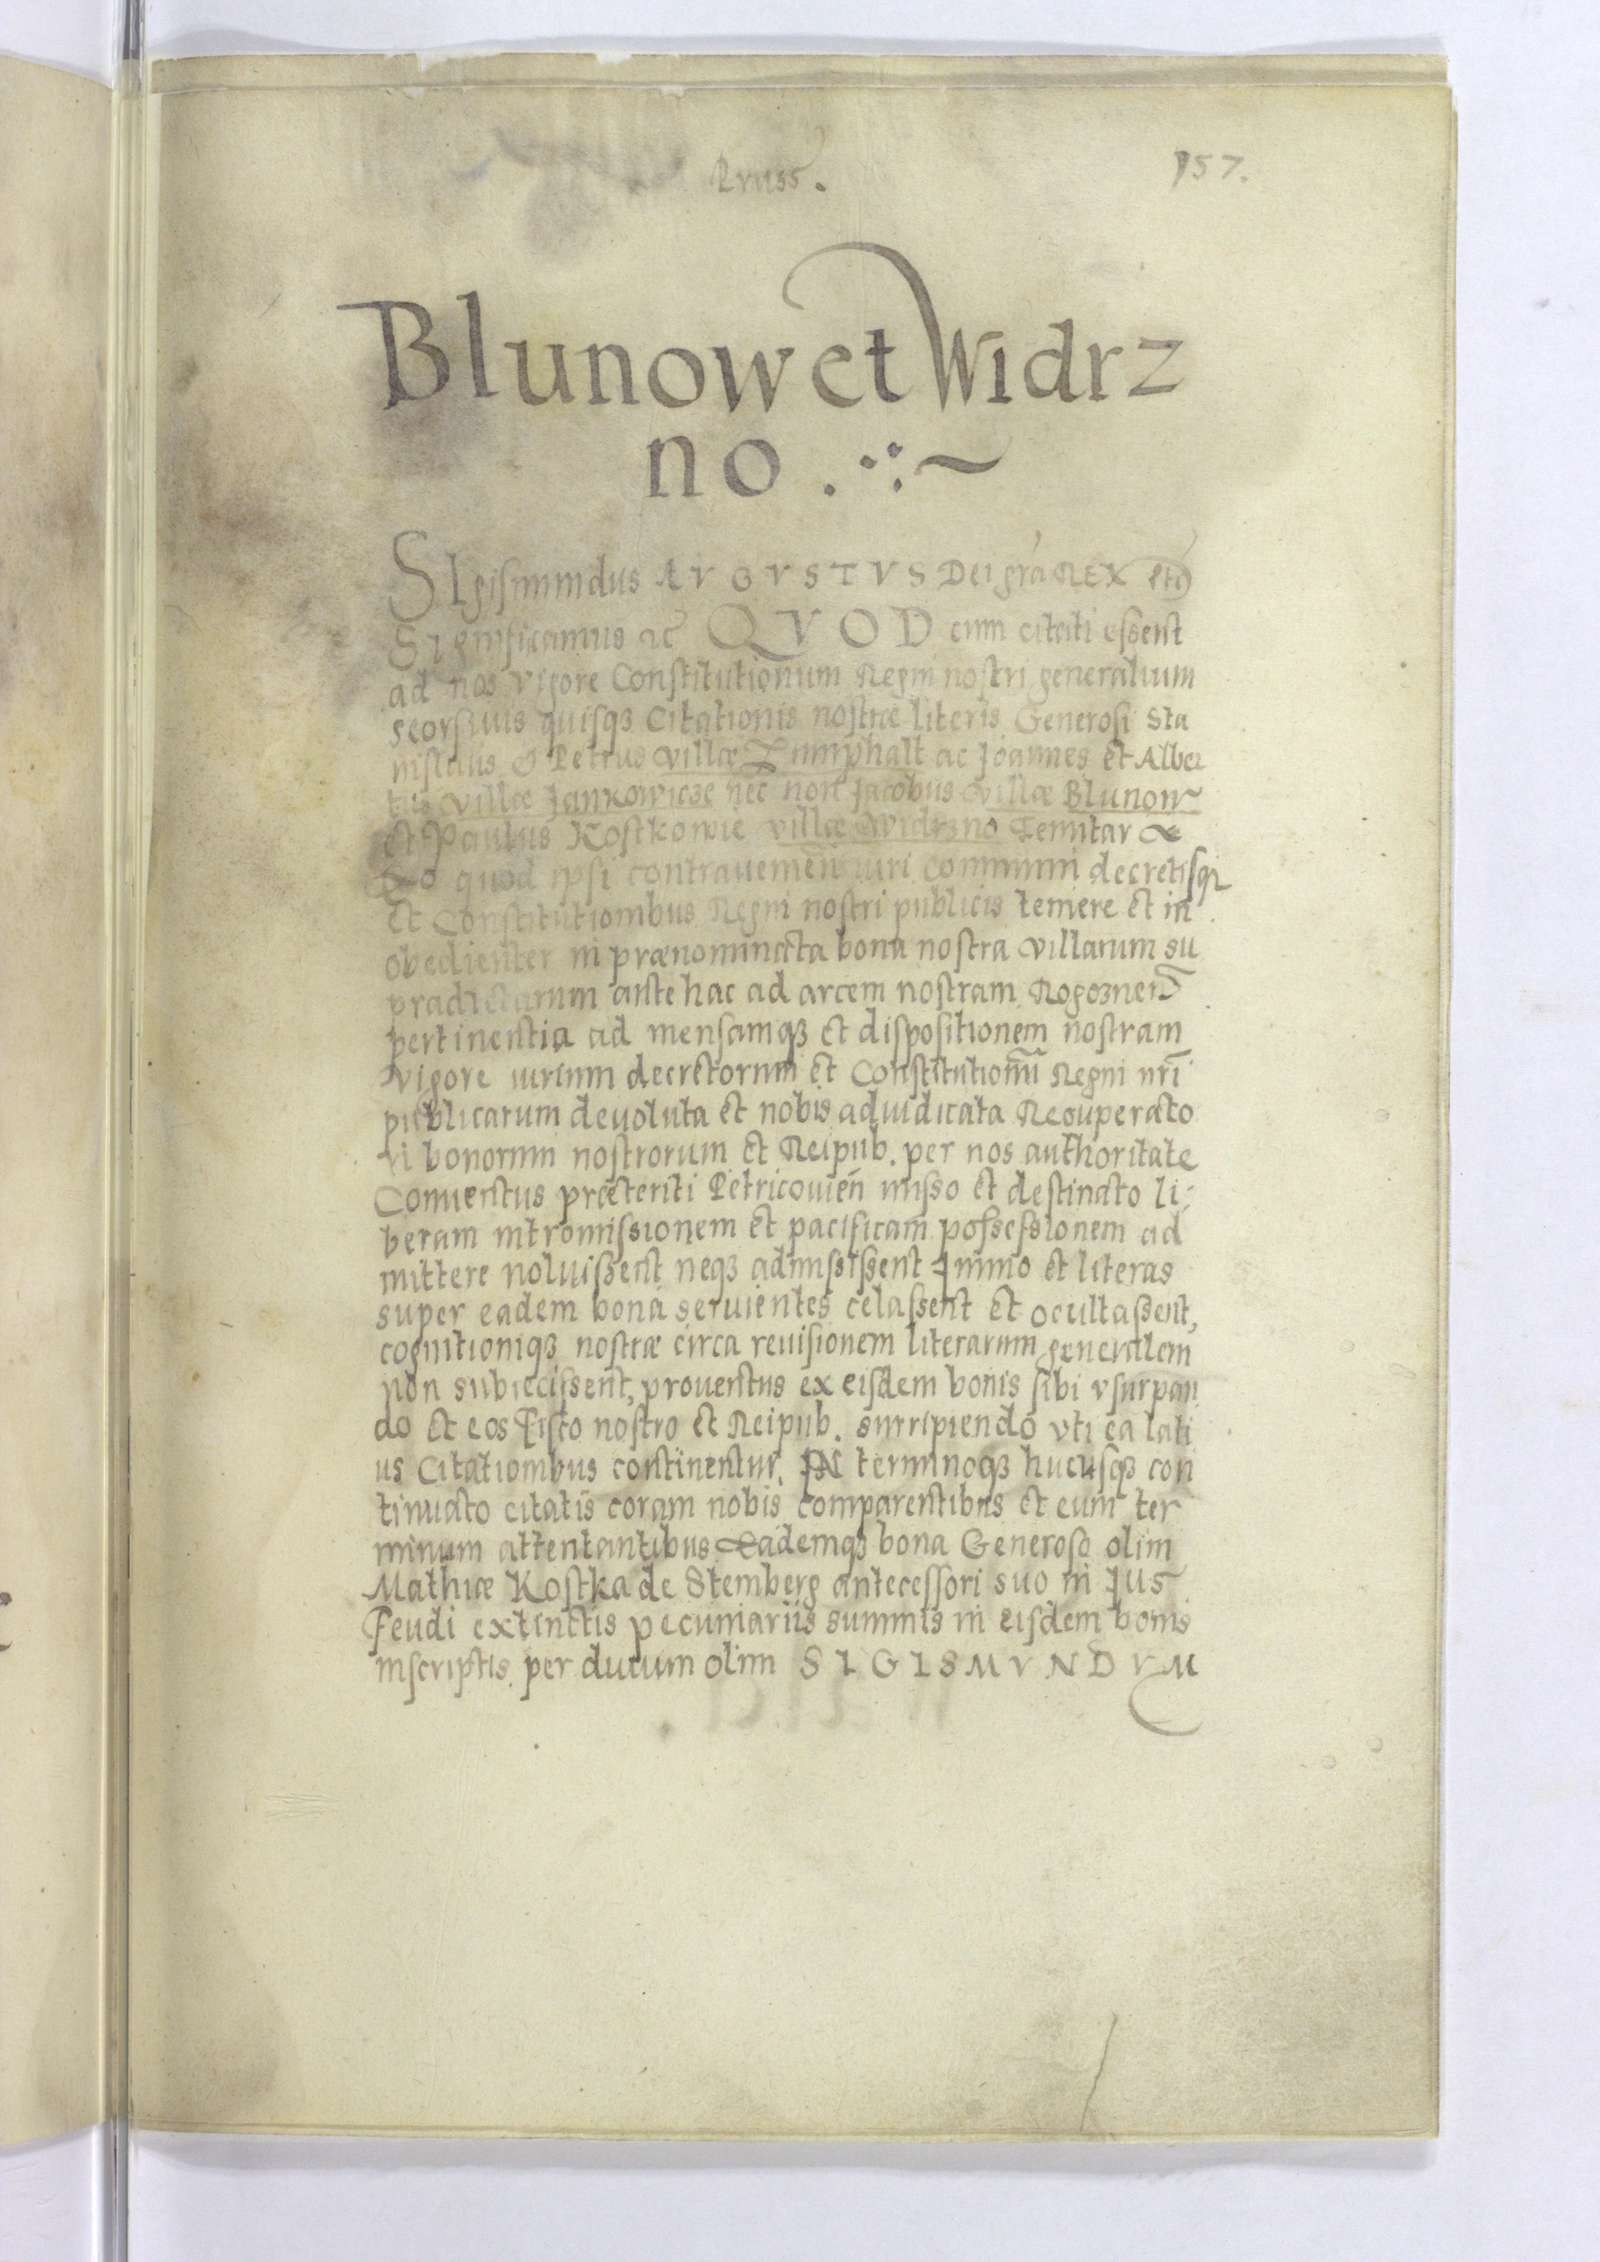 Pruss.
157.
Blunow et Widrz
no
SIgismundus AVGVSTVS Dei gra REX etc
Significamus ac QVOD cum citati essent
ad nos vigore Constitutionum Regni nostri generalium
seorsiuis quisqз Citationis nostræ literis Generosi Sta
nislaus & Petrus villæ Zumphalt ac Joannes et Alber
tus villæ Jankowicze nec non Jacobus villæ Blunow
et Paulus Kostkowie villæ Widrzno Tenutar
quod ipsi contrauenien iuri communi decretisqз
et Constitutionibus Regni nostri publicis temere et in
obedienter in prænominata bona nostra villarum su
pradictarum antehac ad arcem nostram Rogoznen
pertinentia ad mensamqз et dispositionem nostram
vigore iurium decretorum et Constitutionū Regni nrī
publicarum deuoluta et nobis adiudicata Recuperato
ri bonorum nostrorum et Reipub. per nos authoritate
Conuentus præteriti Petricouień misso et destinato li
beram intromissionem et pacificam possessionem ad
mittere noluissent neqз admisissent Immo et literas
super eadem bona seruientes celassent et ocultassent,
cognitioniqз nostræ circa reuisionem literarum generalem
non subiecissent, prouentus ex eisdem bonis sibi vsurpan
do et eos Fisco nostro et Reipub. surripiendo vti ea lati
us Citationibus continentur. IN terminoqз hucusqз con
tinuato citatis coram nobis comparentibus et eum ter
minum attentantibus Eademqз bona Generoso olim
Mathiæ Kostka de Stemberg antecessori suo in Jus
Feudi extinctis pecuniariis summis in eisdem bonis
inscriptis per diuum olim SIGISMVNDVM